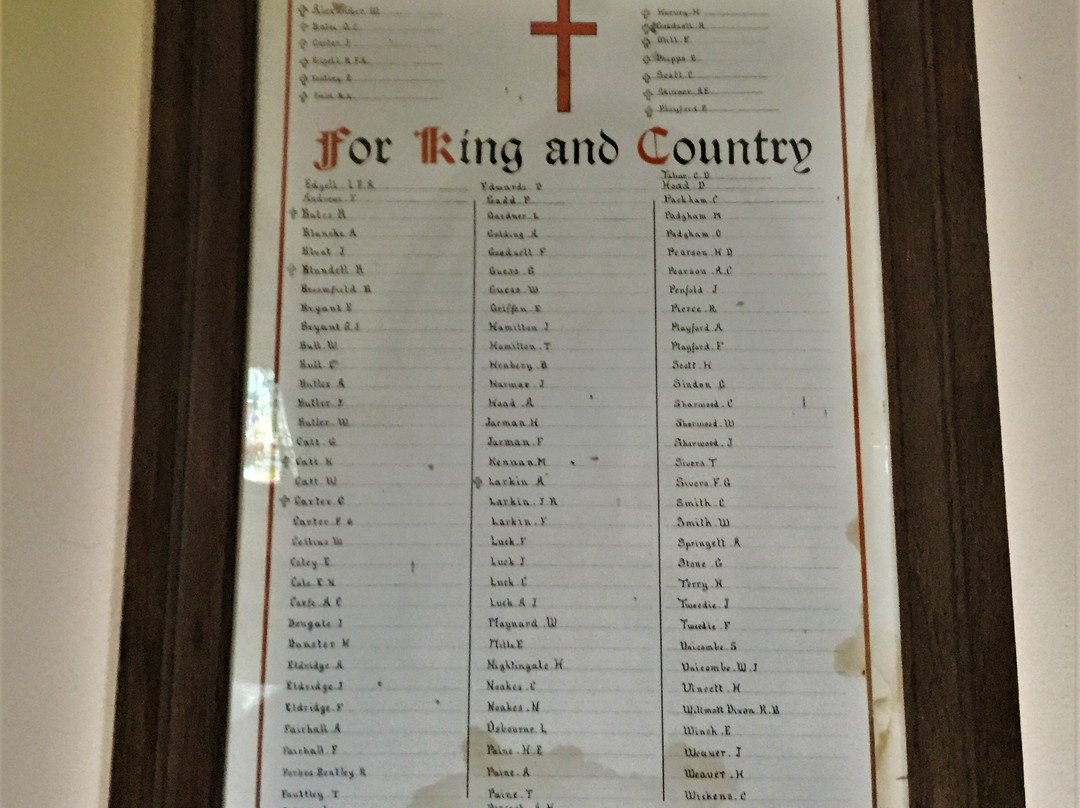 Alexander W
Bates
Carter J
Harvey H
Goodsell R
Mill E
Phipps
Scott C
Skinner
Playford
For King and Country
Edgell. L F R
Andrews.
Bates R
Blanche A
Blunt J
Blundell R
Broomfield
Bryant E
Bryant S J
Bull W
Bull C
Butler A
Butler J
Butler W
Catt G
Catt
Catt W
Carter G
Carter F G
Collins W
Coley E
Cole E
A C
Dengate J
Dunster W
Eldridge A
Eldridge J
Eldridge F
Fairhall A
Fairhall F
Bentley R
Faultley T
Edwards D
Gadd P
Gardner. L
Golding A
Goodsell F
Guess G
Guess W
Griffen E
Hamilton J
Hamilton. T
Henbery. B
Harmar. J
Hoad A
Jarman H
Jarman. F
Kennan. M
Larkin A
Larkin. J R
Larkin. F
Luck. F
Luck J
Luck C
Luck A J
Maynard W
Mills E
Nightingale H
Noakes. C
Noakes. N
Osbourne. L
Paine. H E
Paine. A
Paine. T
Hoad D
Packham. C
Padgham M
Padgham. O
Pearson H D
Pearson. A. C
Penfold J
Pierce. R
Playford A
Playford. F
Scott H
Sindon G
Sharwood. C
Sharwood. W
Sharwood. J
Sivers. T
Sivers. F. G
Smith. C
Smith. W
Springett A
Stone. G
Terry. H
Tweedie. J
Tweedie. F
Unicombe. S
Unicombe. W. J
Vincett. H
Willmott Dixon R. B
Winch. E
Weaver. J
Weaver. H
Wickens. C